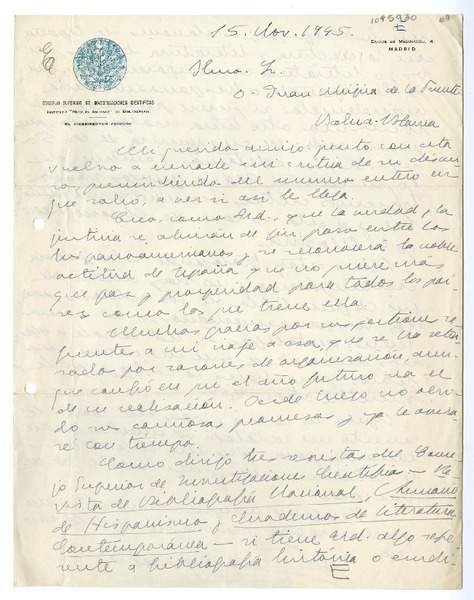 15. Nov. 1945.
1095930
E
DUQUE DE MEDINACELI, 4
MADRID
CONSEJO SUPERIOR DE INVESTIGACIONES CIENTÍFICAS
INSTITUTO "NICOLÁS ANTONIO" DE BIBLIOGRAFÍA
EL VICEDIRECTOR
Ilmo. Sr.
D. Juan Mujica de la Fuente
Mi querido amigo: junto con esta
vuelvo a enviarle mi crítica de su discur
so, prescindiendo del número entero en
que salió, a ver si así le llega.
Creo, como Ud., que la verdad y la
justicia se abrirán al fin paso entre los
hispanoamericanos y se reconocerá la noble
actitud de España, que no quiere más
que paz y prosperidad para todos los paí
ses como los que tiene ella.
Muchas gracias por sus gestiones re
ferentes a mi viaje a esa, que se ha retra
sado por razones de organización, aun
que confío en que el año futuro sea el
de su realización. Desde luego no olvi
do sus cariñosas promesas y ya le avisa
ré con tiempo.
Como dirijo tres revistas del Conse
jo Superior de Investigaciones Científicas - Re
vista de Bibliografía Nacional,
de Hispanismo y Cuadernos de Literatura
Contemporánea - si tiene Ud. algo refe
rente a bibliografía histórica o erudi
E